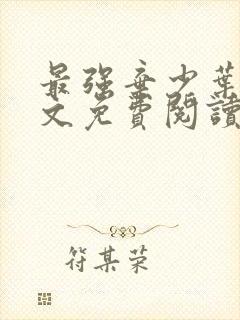 最强弃少葉
文免費閱讀
符某荣